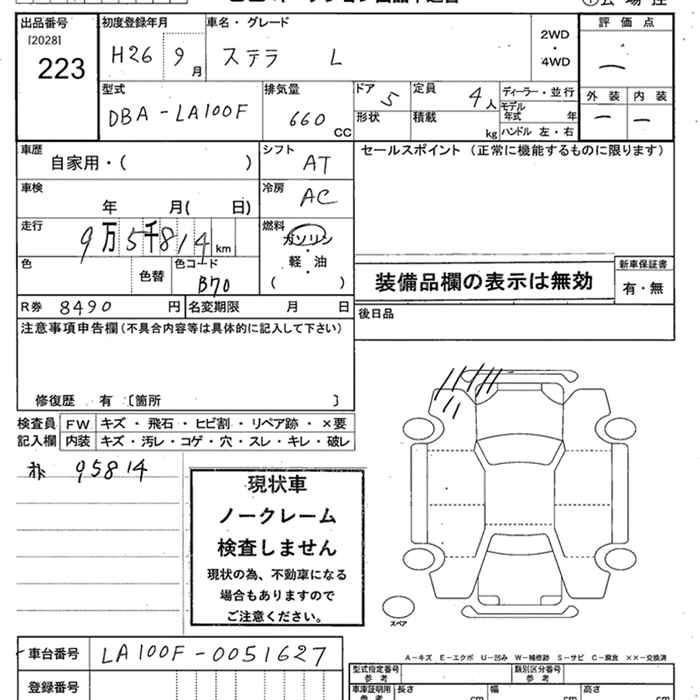 出品番号 初度登録年月 車名・グレード 評価点
[2028] 223 H26 9月 ステラ L 2WD・4WD —
外装 内装
— —
型式 排気量 ドア 定員 ディーラー・並行
DBA-LA100F 660cc 5 4人 モデル年式 年
形状 積載 kg ハンドル 左・右
車歴 シフト セールスポイント(正常に機能するものに限ります)
自家用・( ) AT
車検 冷房
年 月( 日) AC
走行 燃料
9万5千814km ガソリン・軽油
( )
色 色替 色コード 装備品欄の表示は無効 新車保証書
B70 有・無
R券 8490円 名変期限 月 日 後日品
注意事項申告欄(不具合内容等は具体的に記入して下さい)
修復歴 有〔箇所 〕
検査員 FW キズ・飛石・ヒビ割・リペア跡・×要
記入欄 内装 キズ・汚レ・コゲ・穴・スレ・キレ・破レ
95814
現状車
ノークレーム
検査しません
現状の為、不動車になる
場合もありますので
ご注意ください。
スペア
車台番号 LA100F-0051627
A-キズ E-エクボ U-凹み W-補修跡 S-サビ C-腐食 ××-交換済
登録番号 型式指定番号 参考 類別区分番号 参考
車庫証明用 参考 長さ cm 幅 cm 高さ cm